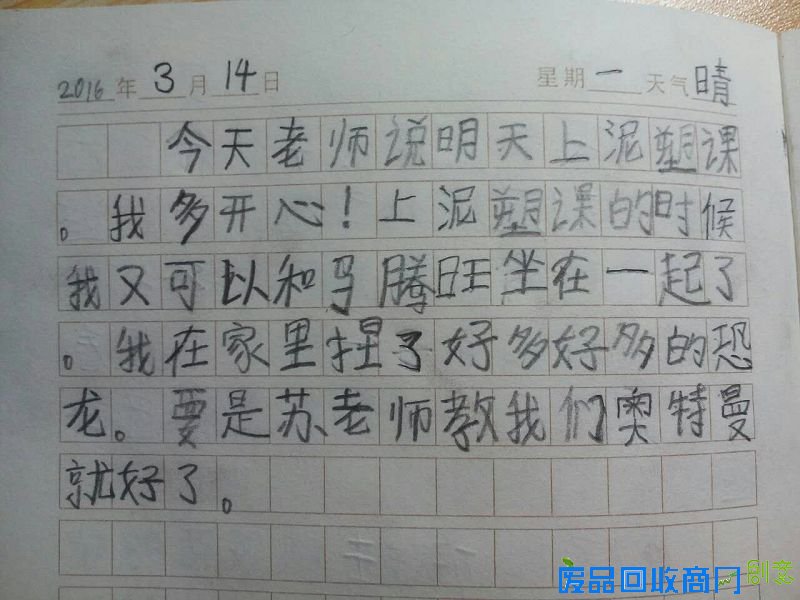 2016年3月14日 星期一天气晴
今天老师说明天上泥塑课
。我多开心！上泥塑课的时候
我又可以和马腾旺坐在一起了
。我在家里捏了好多好多的恐
龙。要是苏老师教我们奥特曼
就好了。
废品回收商门
创意